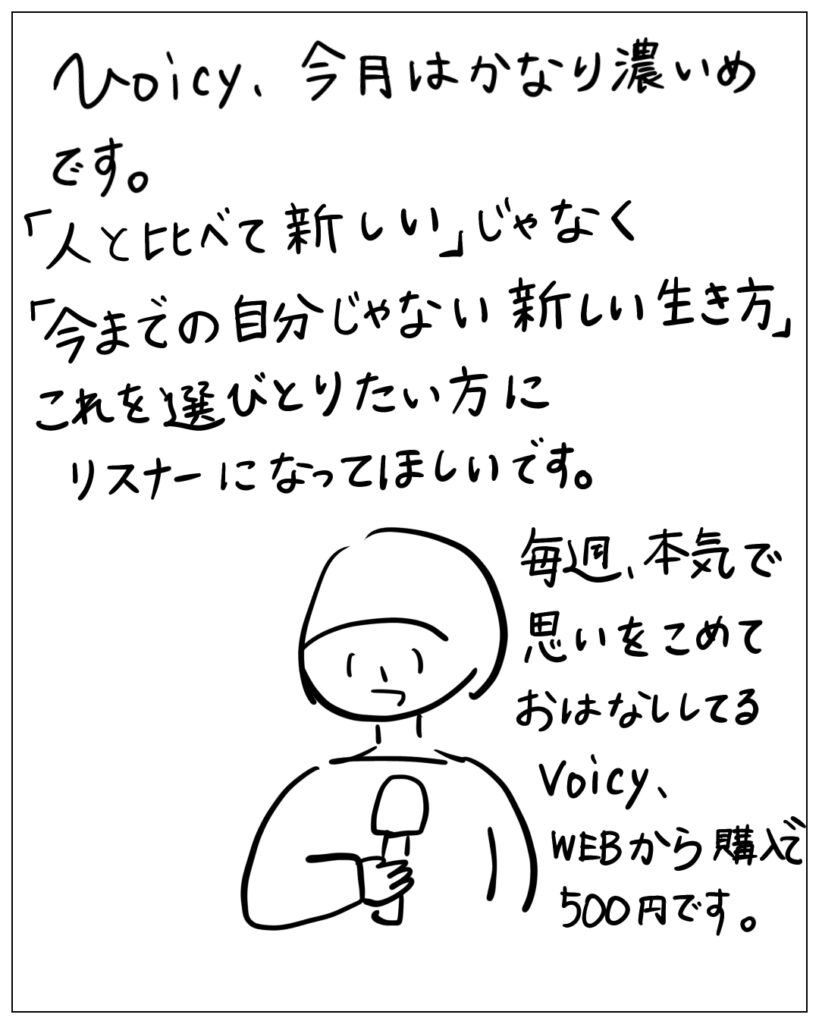 Voicy、今月はかなり濃いめ
です。
「人と比べて新しい」じゃなく
「今までの自分じゃない新しい生き方」
これを選びとりたい方に
リスナーになってほしいです。
毎週、本気で
思いをこめて
おはなししてる
Voicy、
WEBから購入で
500円です。